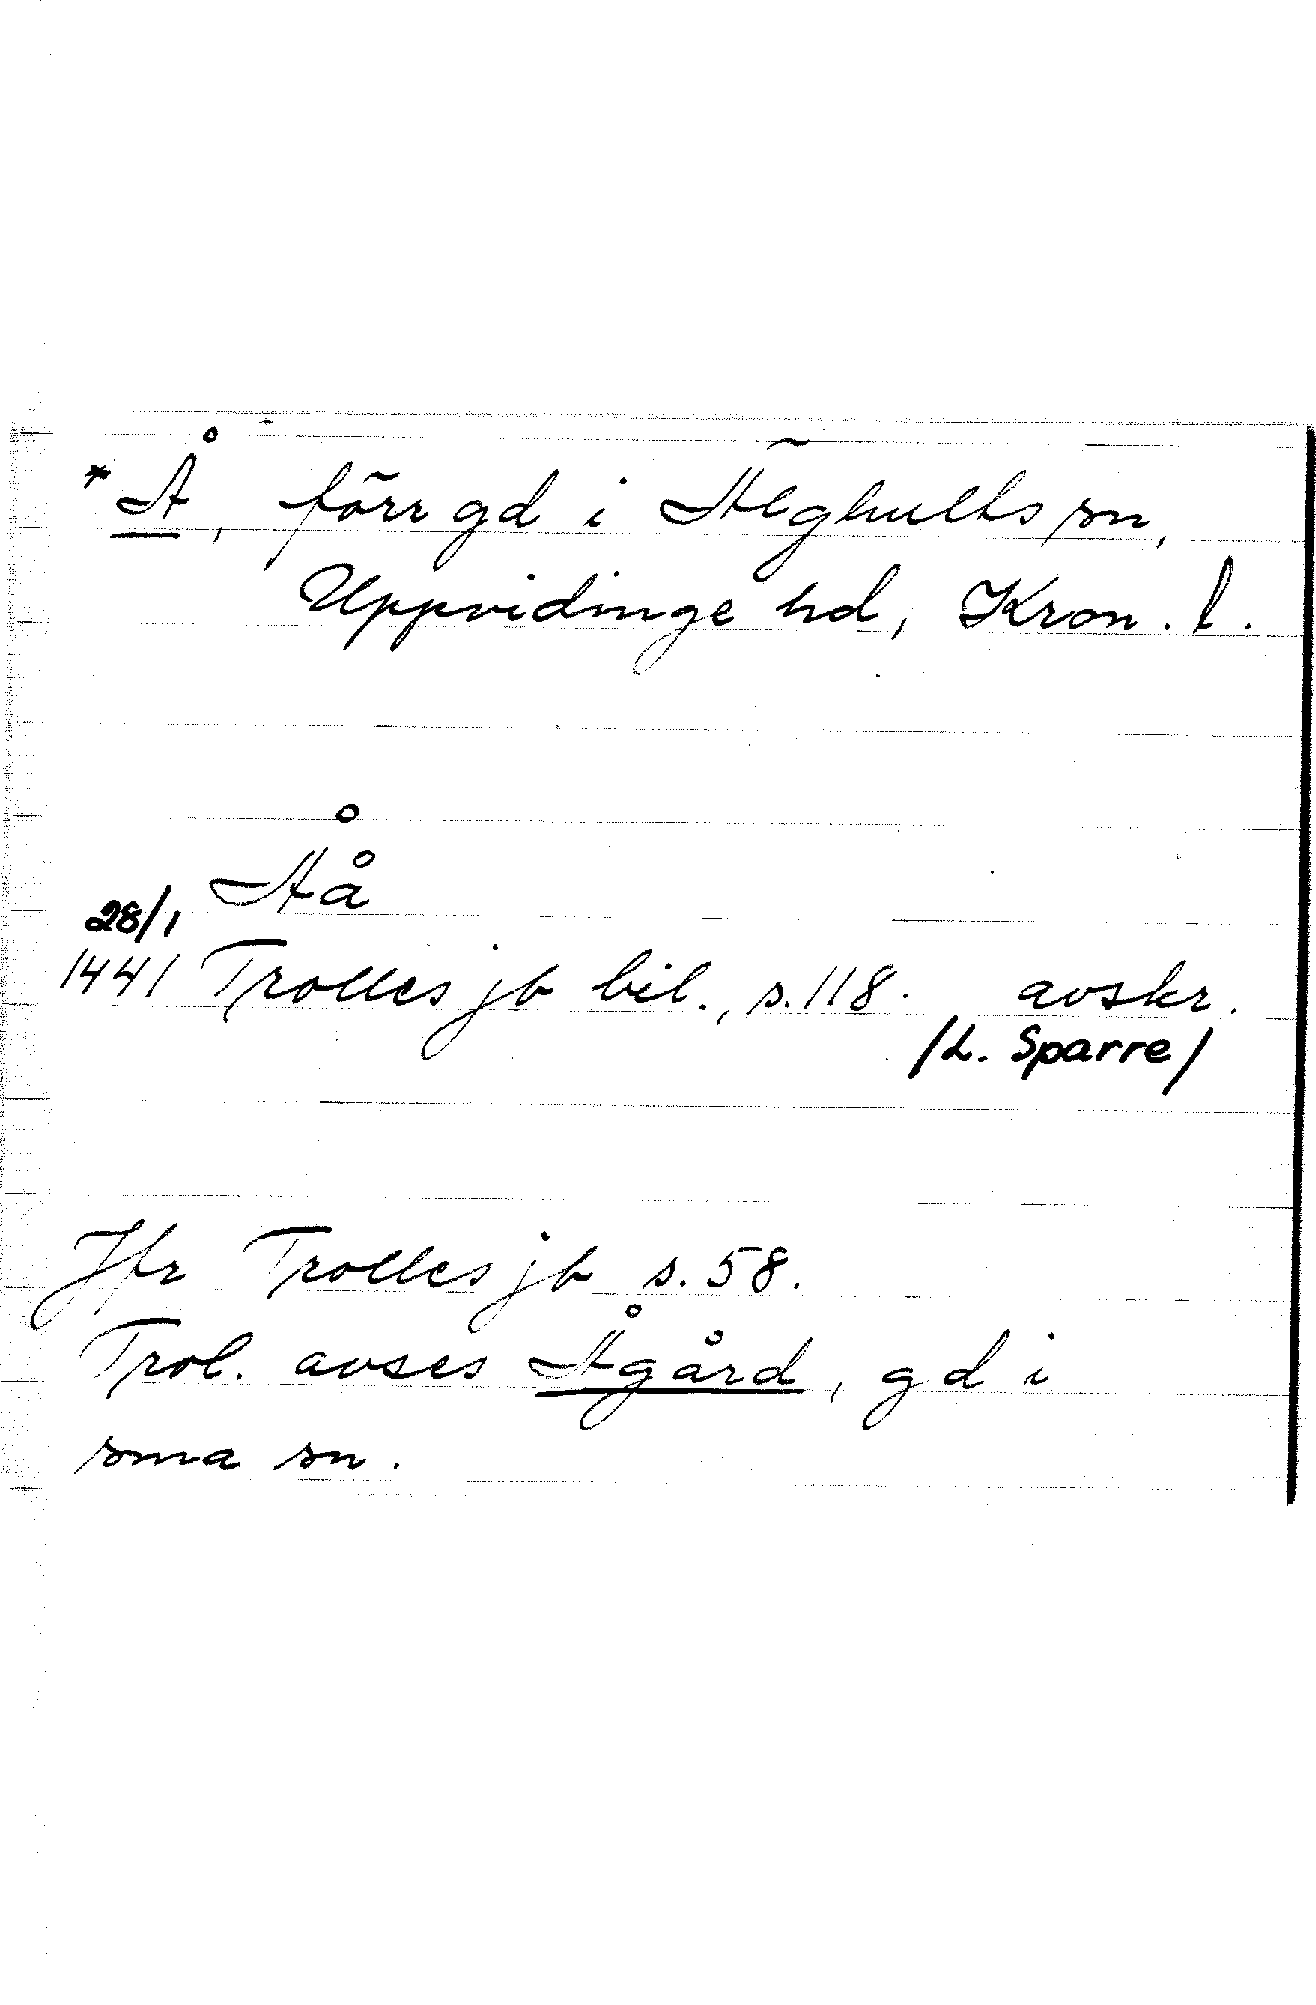 * Å, förr gd i Älghults sn,
Uppvidinge hd, Kron. l.
Åå
28/1
1441 Trolles jb bil., s. 118. avskr.
/L. Sparre/
Jfr Trolles jb s. 58.
Trol. avses Ågård, gd i
sma sn.